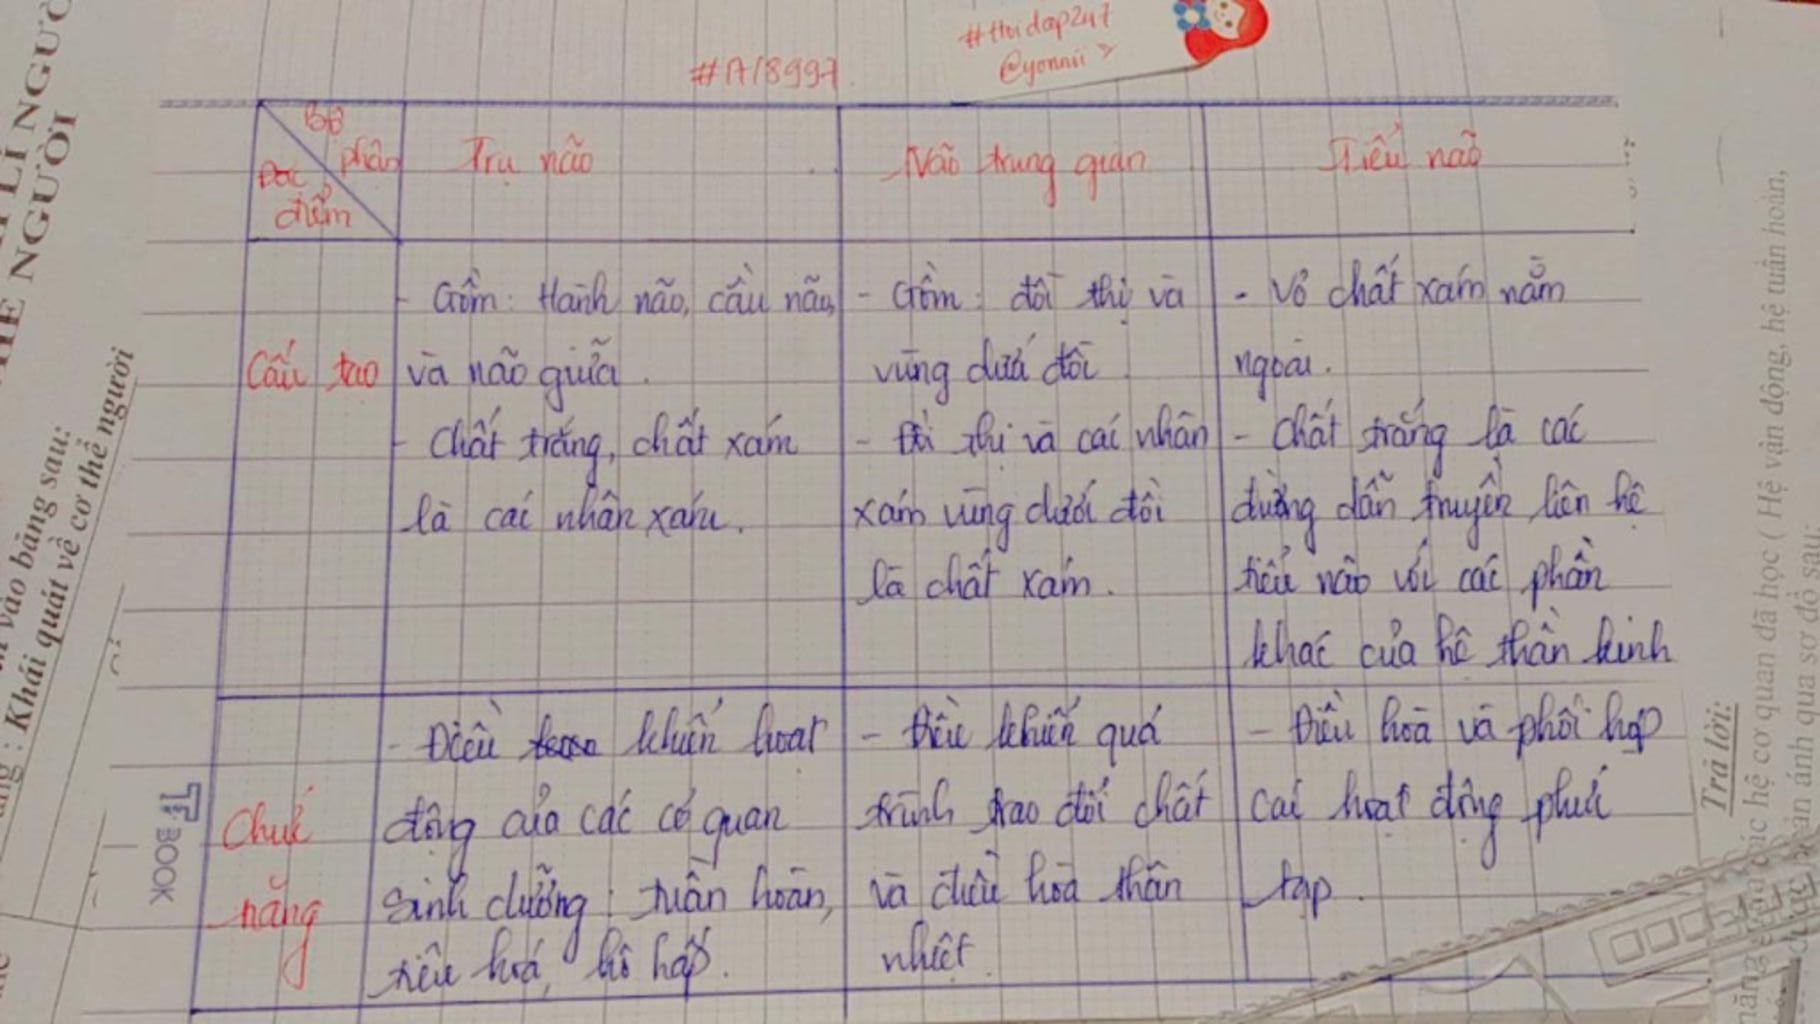 #Hoidap247
@yonnii
#A18997
Bộ phận
Đặc điểm
Trụ não
Não trung gian
Tiểu não
Cấu tạo
- Gồm: Hành não, cầu não,
và não giữa.
- Chất trắng, chất xám
là các nhân xám.
- Gồm: đồi thị và
vùng dưới đồi
- Đồi thị và các nhân
xám vùng dưới đồi
là chất xám.
- Vỏ chất xám nằm
ngoài.
- Chất trắng là các
đường dẫn truyền liên hệ
tiểu não với các phần
khác của hệ thần kinh
Chức
năng
- Điều khiển hoạt
động của các cơ quan
sinh dưỡng: tuần hoàn,
tiêu hoá, hô hấp.
- Điều khiển quá
trình trao đổi chất
và điều hoà thân
nhiệt.
- Điều hoà và phối hợp
các hoạt động phức
tạp.
TP BOOK
LÍ NGƯỜI
THỂ NGƯỜI
vào bảng sau:
: Khái quát về cơ thể người
Trả lời:
các hệ cơ quan đã học ( Hệ vận động, hệ tuần hoàn,
phản ánh qua sơ đồ sau: